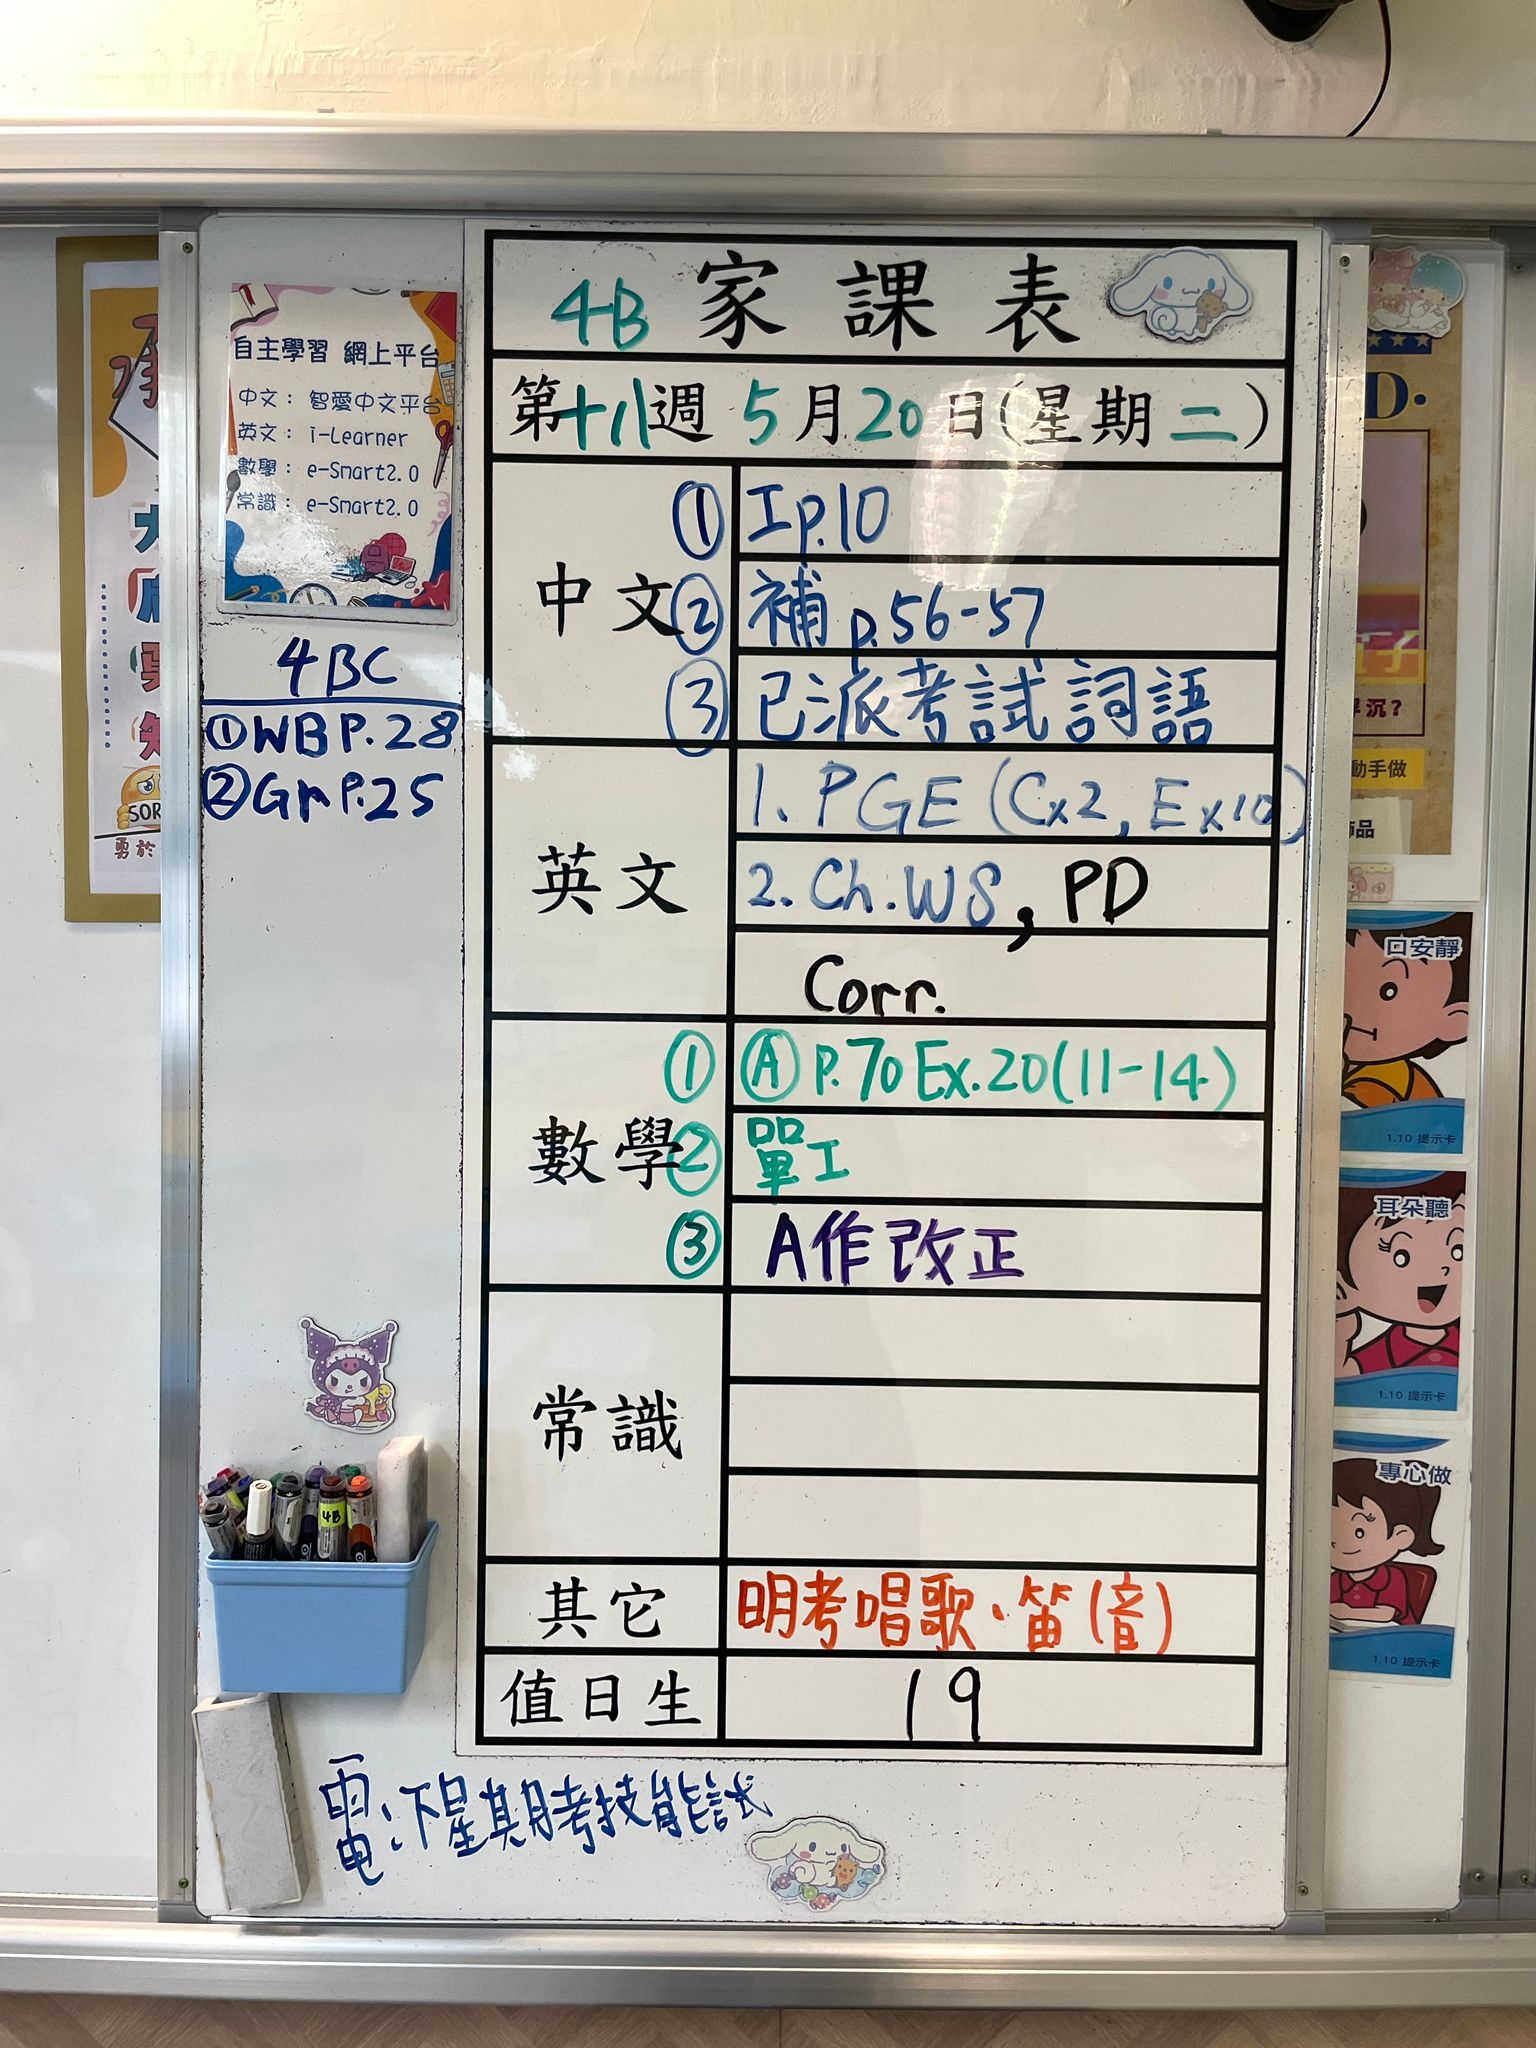 4B 家課表
第十八週 5月20日(星期二)
中文
① 工p.10
② 補 p.56-57
③ 已派考試詞語
英文
1. PGE (Cx2, Ex10)
2. Ch.W8, PD
Corr.
數學
① Ⓐ P.70 Ex.20(11-14)
② 單工
③ A作改正
常識
其它
明考唱歌、笛(音)
值日生
19
電:下星期考技能試
自主學習 網上平台
中文: 智愛中文平台
英文: i-Learner
數學: e-Smart2.0
常識: e-Smart2.0
4BC
① WB P.28
② Gm P.25
SOR
勇於
4B
D.
沉?
動手做
飾品
口安靜
1.10 提示卡
耳朵聽
1.10 提示卡
專心做
1.10 提示卡